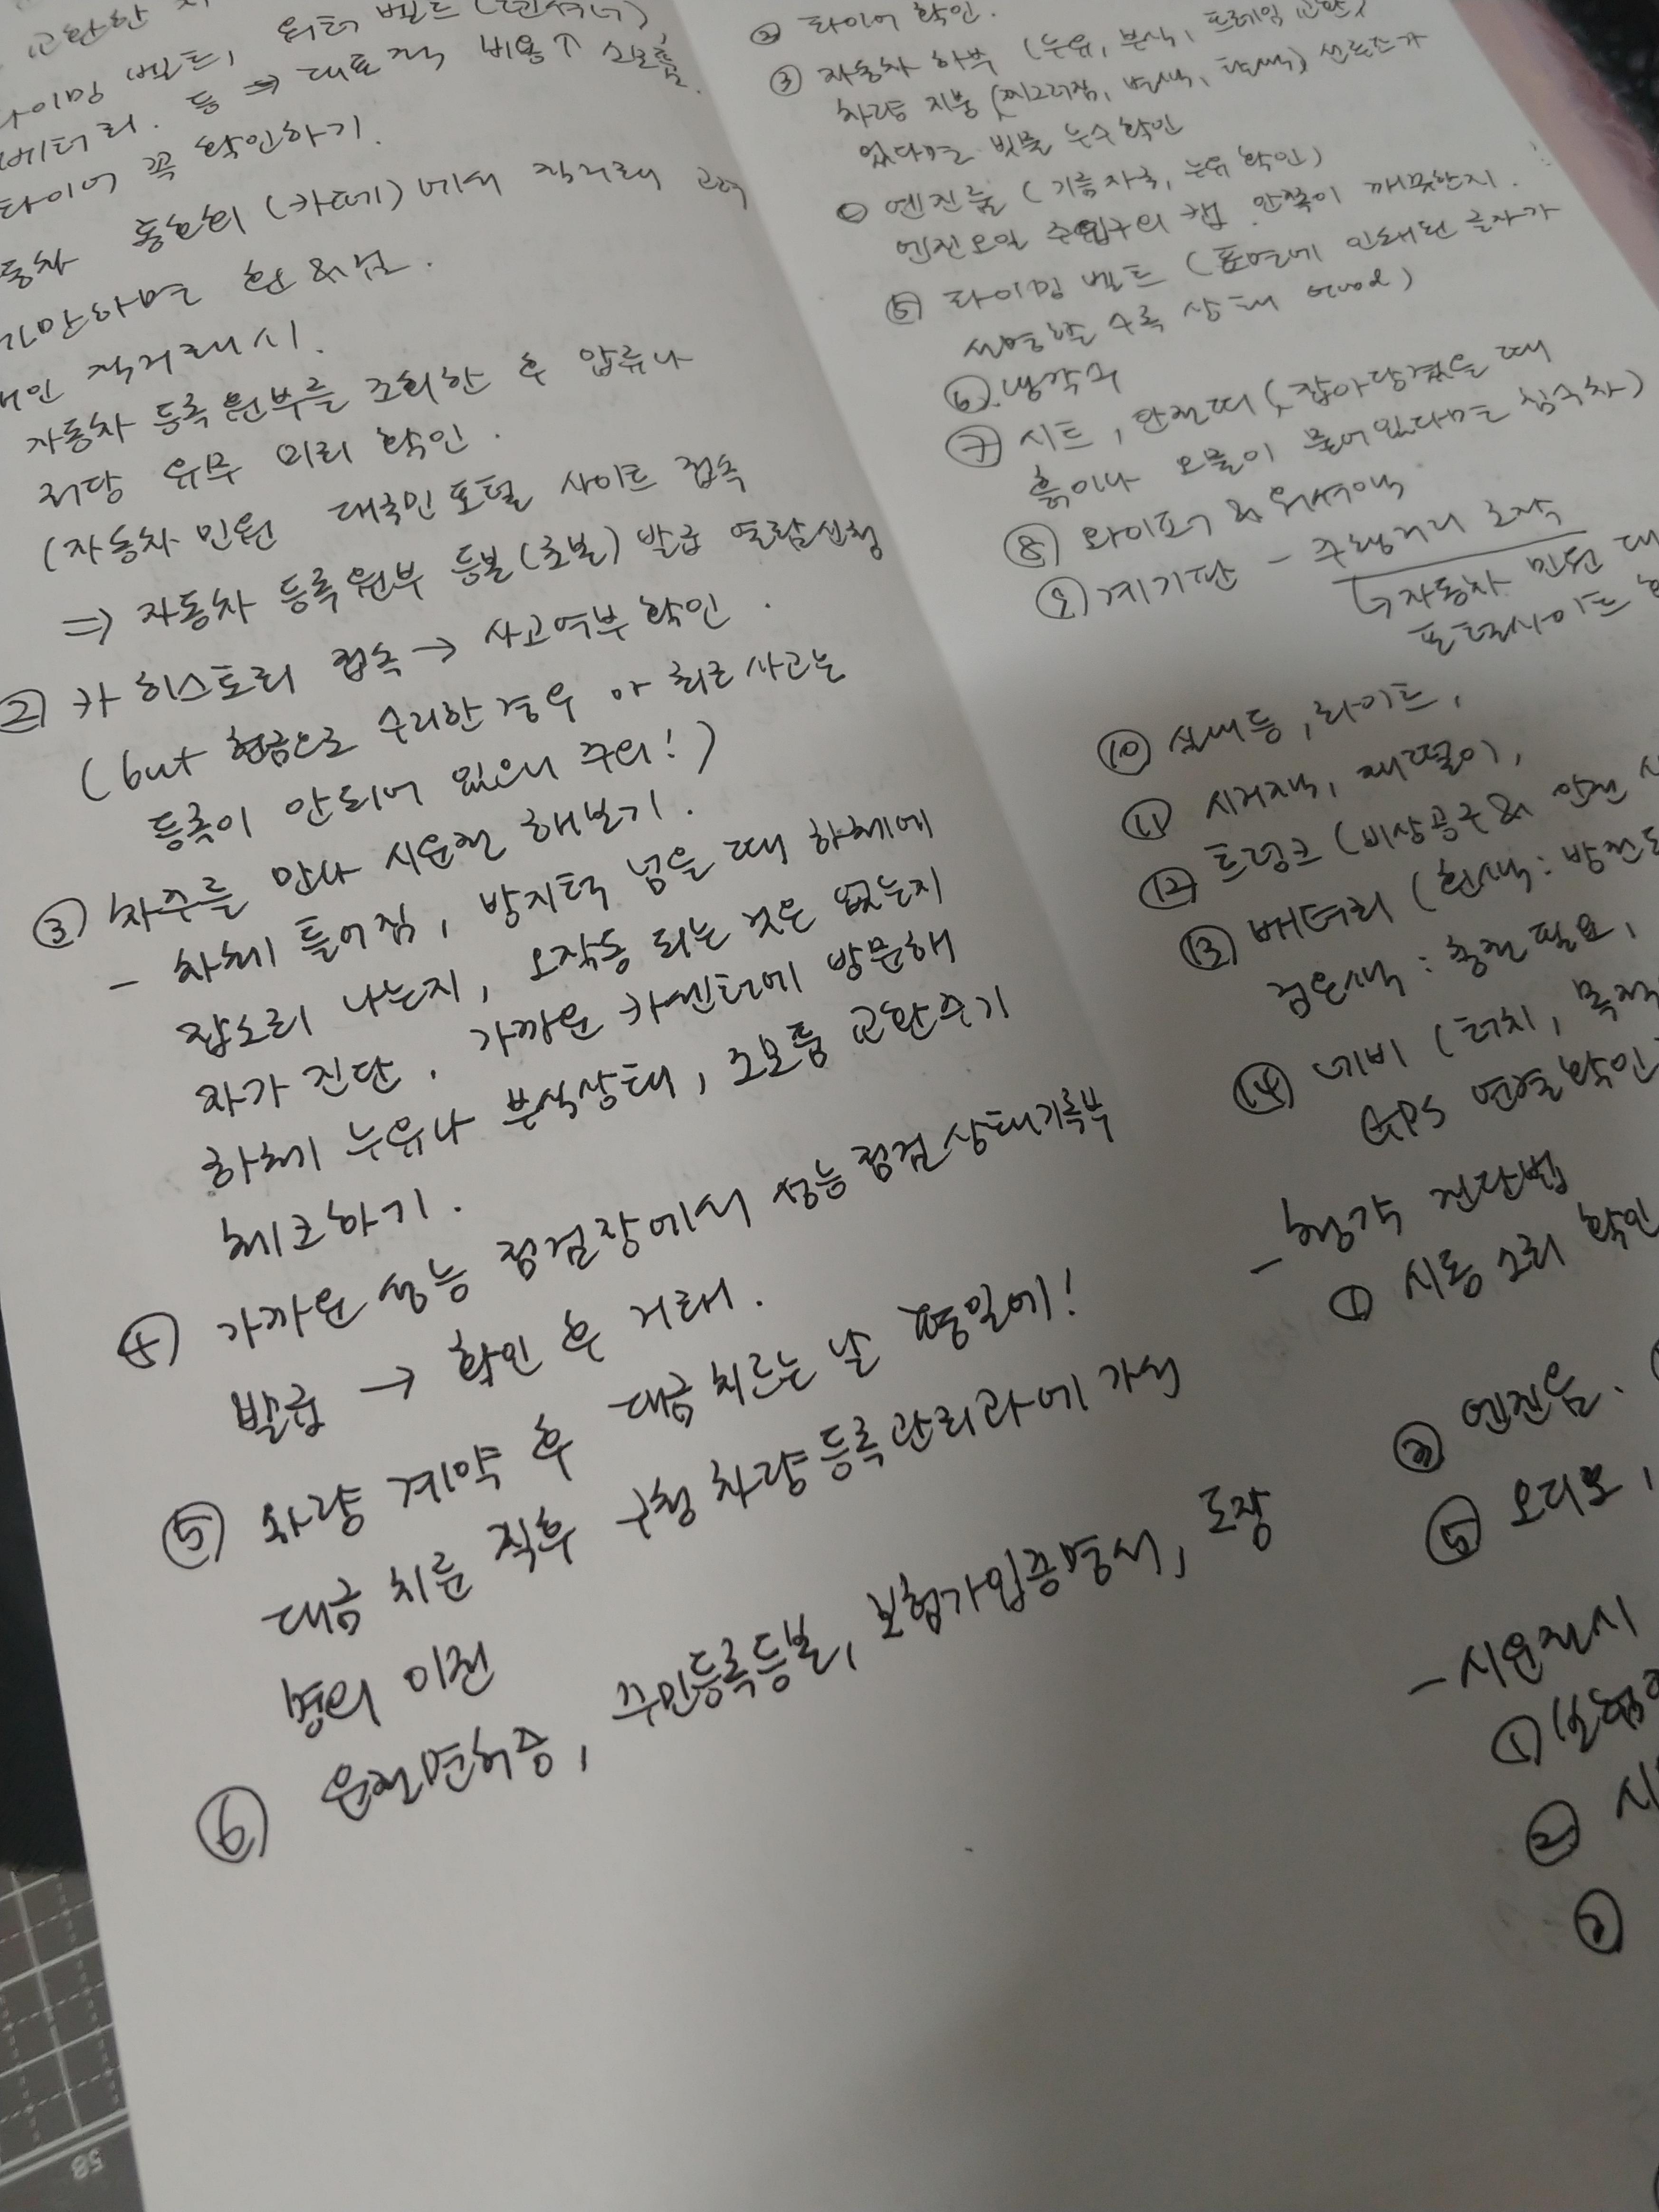 교환한
타이밍 벨트, 워터 벨트
베터리. 등 ⇒ 대표적 비용↑ 소모품.
타이어 꼭 확인하기.
동차 동호회 (카페)에서 직거래
인 직거래시.
자동차 등록원부를 조회한 후 압류나
저당 유무 미리 확인.
(자동차 민원 대국민 포털 사이트 접속
⇒ 자동차 등록원부 등본(초본) 발급 열람신청
② 카 히스토리 접속 → 사고여부 확인.
(but 현금으로 수리한 경우 아 최근 사고는
등록이 안되어 있으니 주의!)
③ 차주를 만나 시운전 해보기.
- 차체 틀어짐, 방지턱 넘을 때 하체에
잡소리 나는지, 오작동 되는 것은 없는지
자가 진단. 가까운 카센터에 방문해
하체 누유나 부식상태, 소모품 교환주기
체크하기.
④ 가까운 성능 점검장에서 성능점검 상태기록부
발급 → 확인 후 거래.
⑤ 차량 계약 후 대금 치르는 날 평일에!
대금 치른 직후 구청 차량등록관리과에 가서
명의 이전
⑥ 운전면허증, 주민등록등본, 보험가입증명서, 도장
② 타이어 확인.
③ 자동차 하부 (누유, 부식, 프레임 교환)
차량 지붕 (찌그러짐, 변색, 탈색) 선루프가
있다면 빗물 누수 확인
④ 엔진룸 (기름자국, 누유 확인)
엔진오일 주입구의 캡 안쪽이 깨끗한지.
⑤ 타이밍 벨트 (표면에 인쇄된 글자가
선명할 수록 상태 good)
⑥ 냉각수
⑦ 시트, 안전띠 (잡아당겼을 때
흙이나 오물이 묻어있다면 침수차)
⑧ 와이퍼 & 워셔액
⑨ 계기판 - 주행거리 조작
↳ 자동차 민원 대
포털사이트
⑩ 실내등, 라이트,
⑪ 시거잭, 재떨이,
⑫ 트렁크 (비상공구 & 안전
⑬ 배터리 (흰색: 방전
검은색: 충전 필요,
⑭ 네비 (터치, 목적
GPS 연결확인
- 청각 진단법
① 시동 소리 확인
② 엔진음.
⑤ 오디오,
- 시운전시
①
② 시
③
58